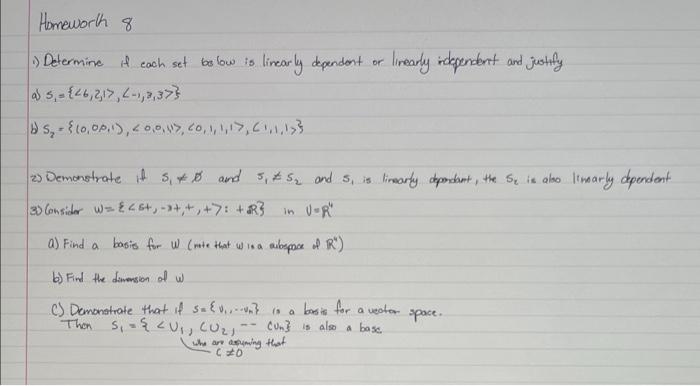 Homework 8
1) Determine if each set below is linearly dependent or linearly independent and justify
a) S₁={<6,2,1>,<-1,3,3>}
b) S₂={(0,0,0,1),<0,0,1,1>,<0,1,1,1>,<1,1,1>}
2) Demonstrate if S₁≠Ø and S₁≠S₂ and S₁ is linearly dependant, the S₂ is also linearly dependent
3) Consider W={<5t,-3t,t,t>: tR} in V=R⁴
a) Find a basis for W (note that W is a subspace of R⁴)
b) Find the dimension of W
C) Demonstrate that if S={U₁,...Un} is a basis for a vector space.
Then S₁={<U₁,CU₂,-- CUn} is also a base
who are assuming that
C≠0